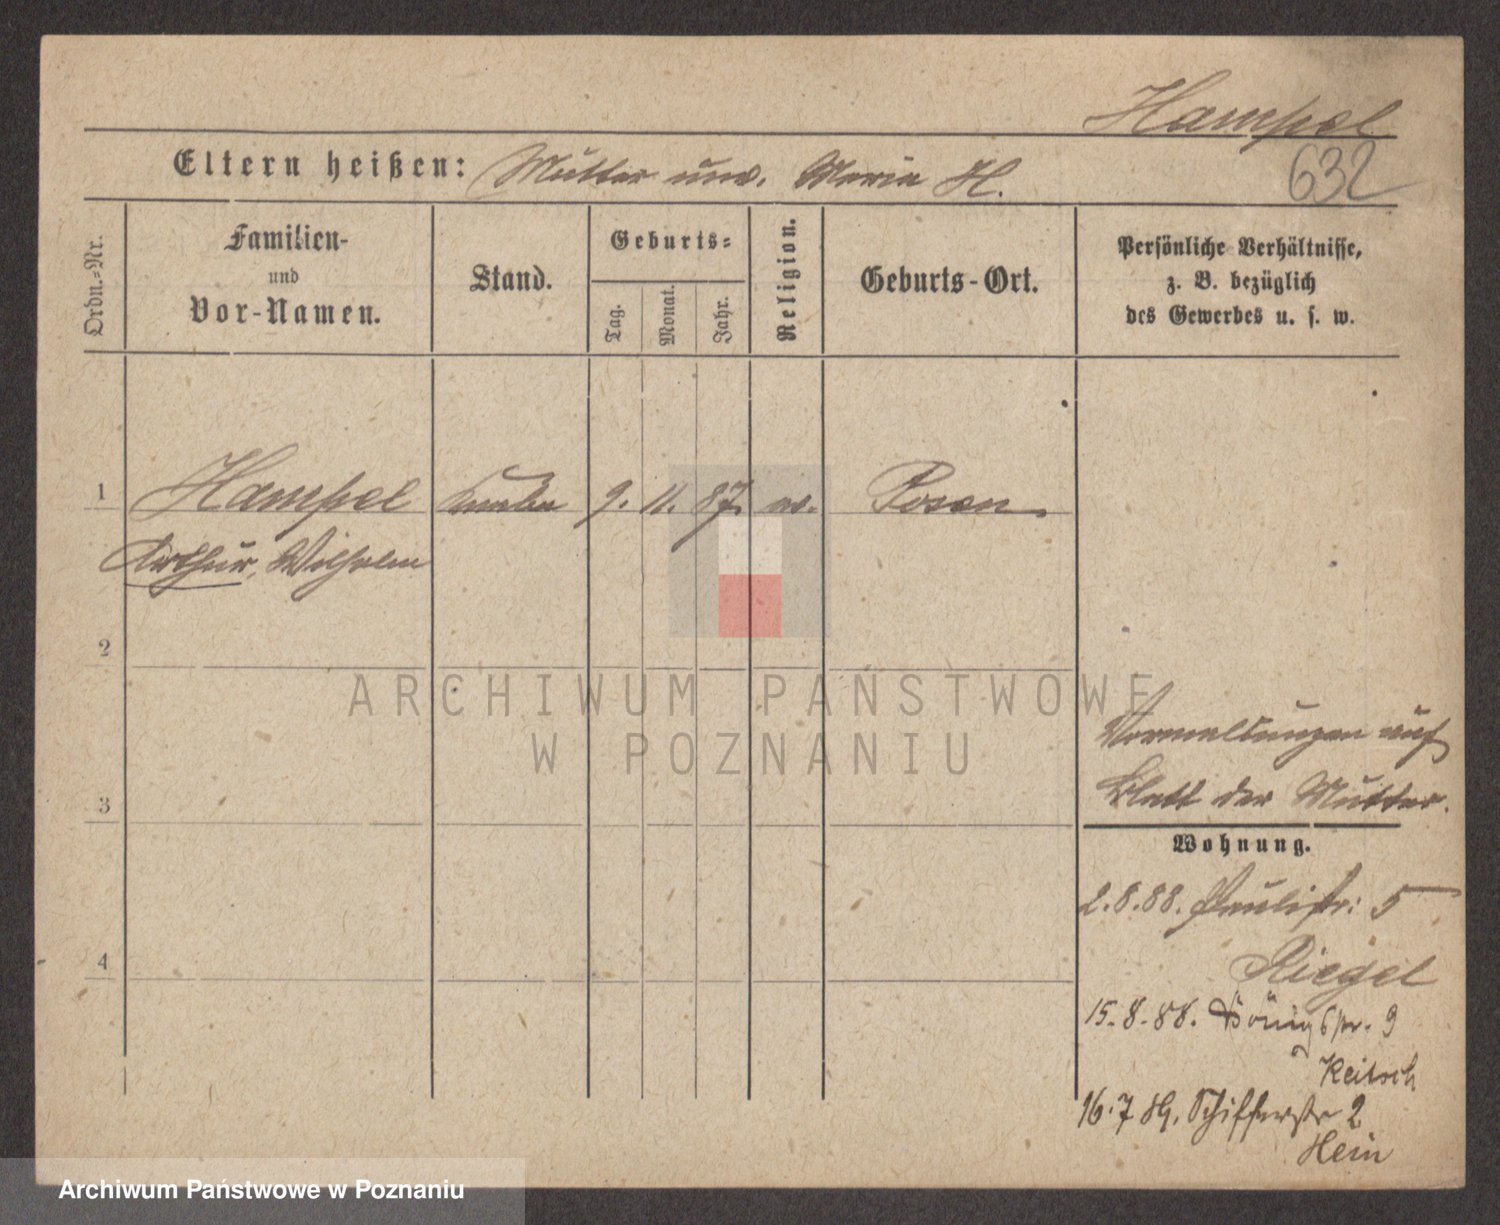 Hampel
632
Eltern heißen: Mutter unv. Maria H.
Ordn.-Nr.
Familien-
und
Vor-Namen.
Stand.
Geburts-
Tag.
Monat.
Jahr.
Religion.
Geburts-Ort.
Persönliche Verhältnisse,
z. B. bezüglich
des Gewerbes u. s. w.
1 Hampel Knabe 9. 11. 87. ev. Posen
Arthur, Wilhelm
2
3
4
Vormeldungen auf
Blatt der Mutter.
Wohnung.
2.8.88. Paulistr: 5
Riegel
15.8.88. Königstr. 9
Keitsch
16.7 89. Schifferstr 2
Hein
ARCHIWUM PAŃSTWOWE
W POZNANIU
Archiwum Państwowe w Poznaniu